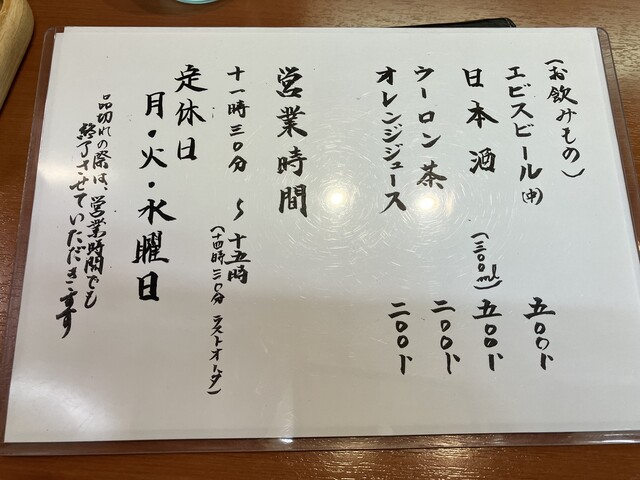 (お飲みもの)
エビスビール(中) 五〇〇円
日本酒(三〇〇ml) 五〇〇円
ウーロン茶 二〇〇円
オレンジジュース 二〇〇円
営業時間
十一時三〇分〜十五時
(十四時三〇分ラストオーダー)
定休日
月・火・水曜日
品切れの際は、営業時間でも
終了させていただきます